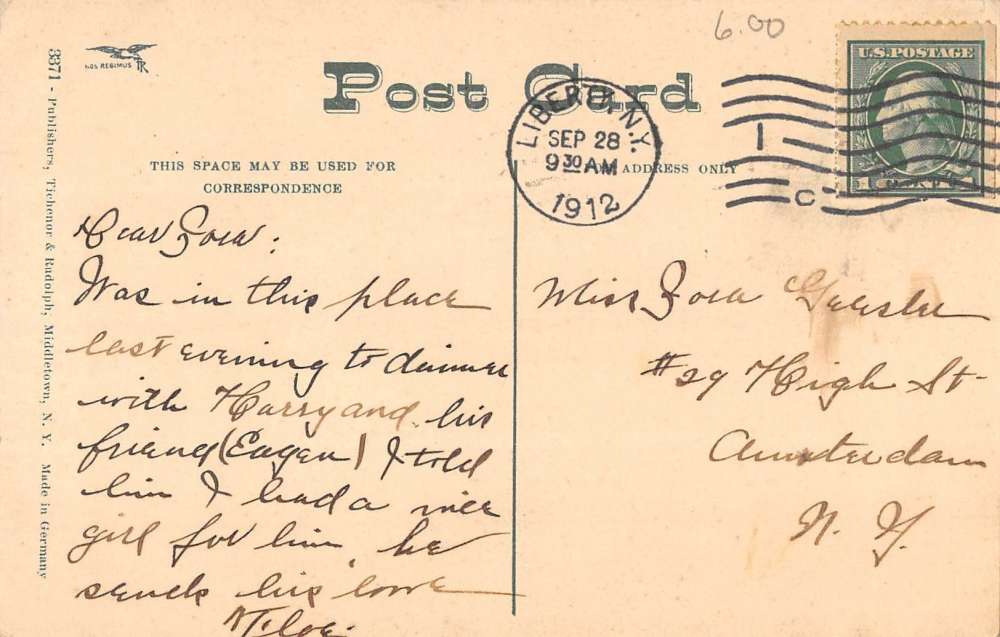 6.00
NOS REGIMUS TR
Post Card
U.S. POSTAGE
LIBERTY, N.Y.
SEP 28
9 30 AM
1912
1
C
THIS SPACE MAY BE USED FOR
CORRESPONDENCE
ADDRESS ONLY
Dear Zora:
Was in this place
last evening to dinner
with Harry and his
friend (Eagen) I told
him I had a nice
girl for him, he
sends his love
Miss Zora
#29 High St.
Amsterdam
N. Y.
3371 - Publishers, Tichenor & Rudolph, Middletown, N. Y. Made in Germany